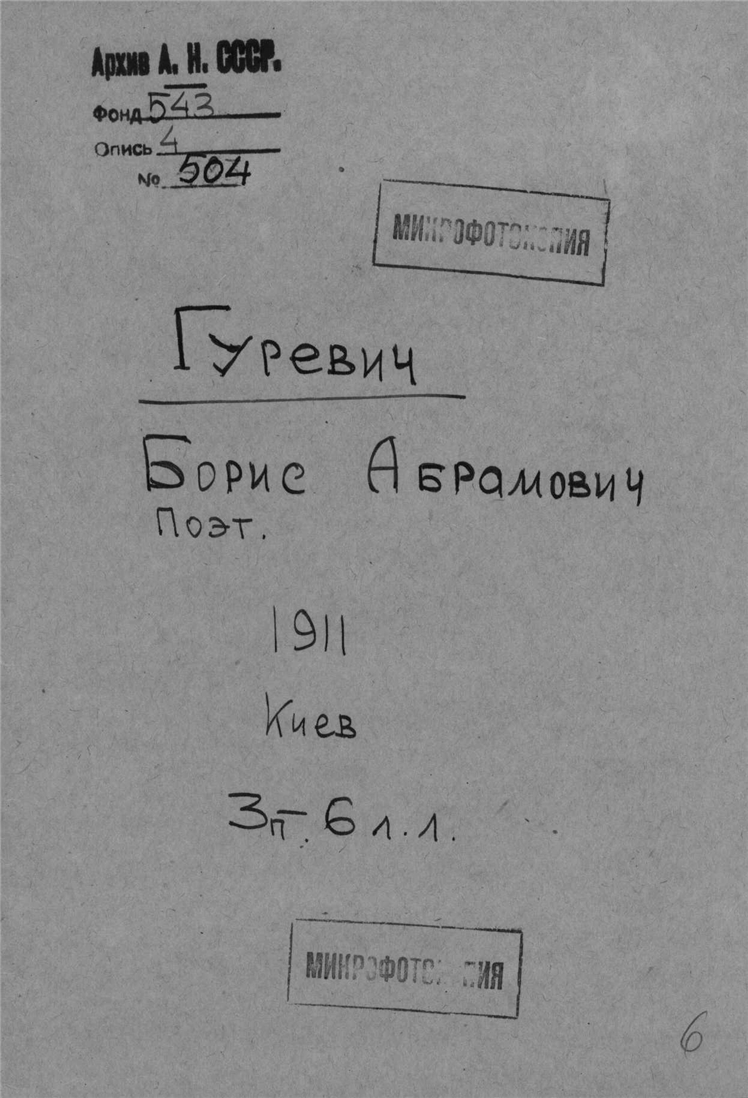 Архив А. Н. СССР.
Фонд 543
Опись 4
№ 504
МИКРОФОТОКОПИЯ
Гуревич
Борис Абрамович
Поэт.
1911
Киев
3п. – 6 л.л.
МИКРОФОТОКОПИЯ
6